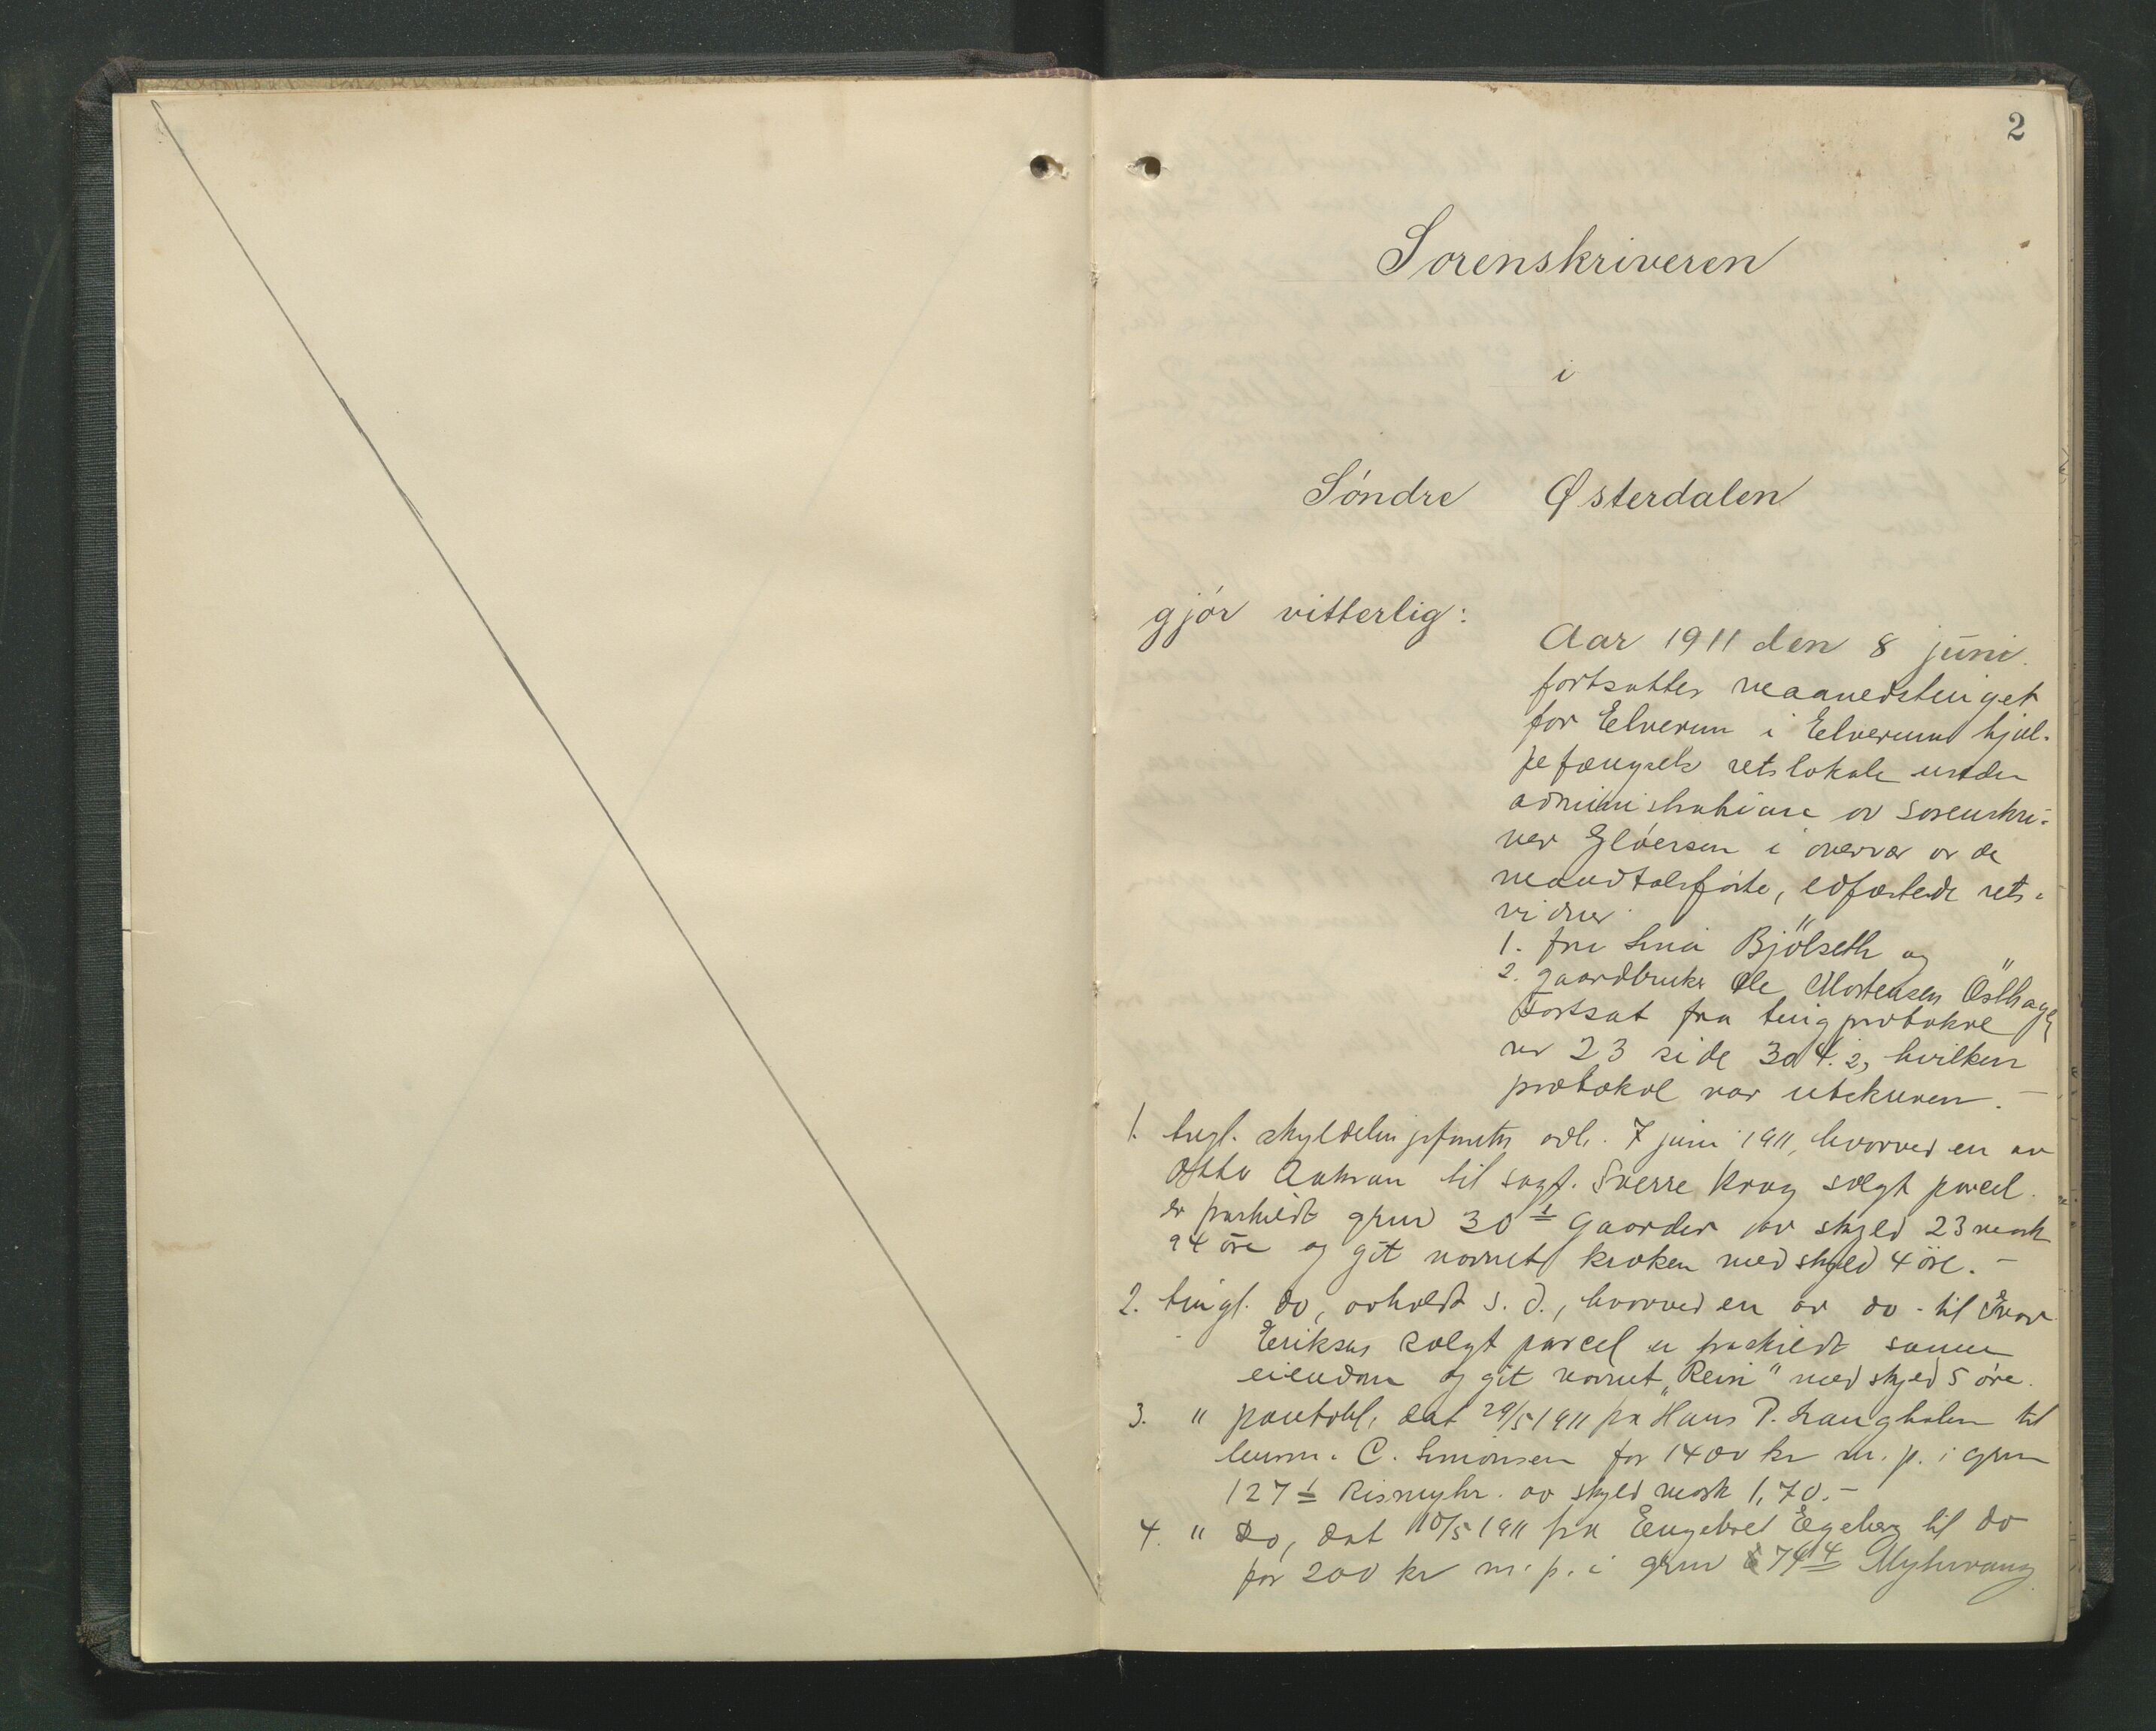 2
Sorenskriveren
i
Søndre Østerdalen
gjör vitterlig:
Aar 1911 den 8 juni
fortsattes maanedstinget
for Elverum i Elverums hjæl-
pefængsels retslokale under
administration av sorenskri-
ver Gløersen i overvær av de
mandtalsførte, edfæstede rets-
vidner
1. fru Bjölseth og
2. gaardbruker Ole Mortensen Östhagen
Fortsat fra tingprotokol
nr 23 side 304.2, hvilken
protokol var utskreven. -
1. tingl. skyldelingsforretn. avh. 7 juni 1911, hvorved en av
Otto Aakran til sagf. Sverre Krog solgt parcel
er fraskildt grnr 30 1 Gaarder av skyld 23 mark
94 öre og git navnet Kroken med skyld 4 öre. -
2. tingl. do, avholdt s. d., hvorved en av do til Ivar
Eriksen solgt parcel er fraskildt samme
eiendom og git navnet "Rein" med skyld 5 öre.
3. " pantobl. dat 29/5 1911 fra Hans P. Langholen til
C. Simonsen for 1400 kr m. p. i grnr
127 1 Rismyhr av skyld mark 1,70. -
4. " Do, dat 10/5 1911 fra Engebret Egeberg til do
for 200 kr m. p. i grnr 74 14 Myhrvang